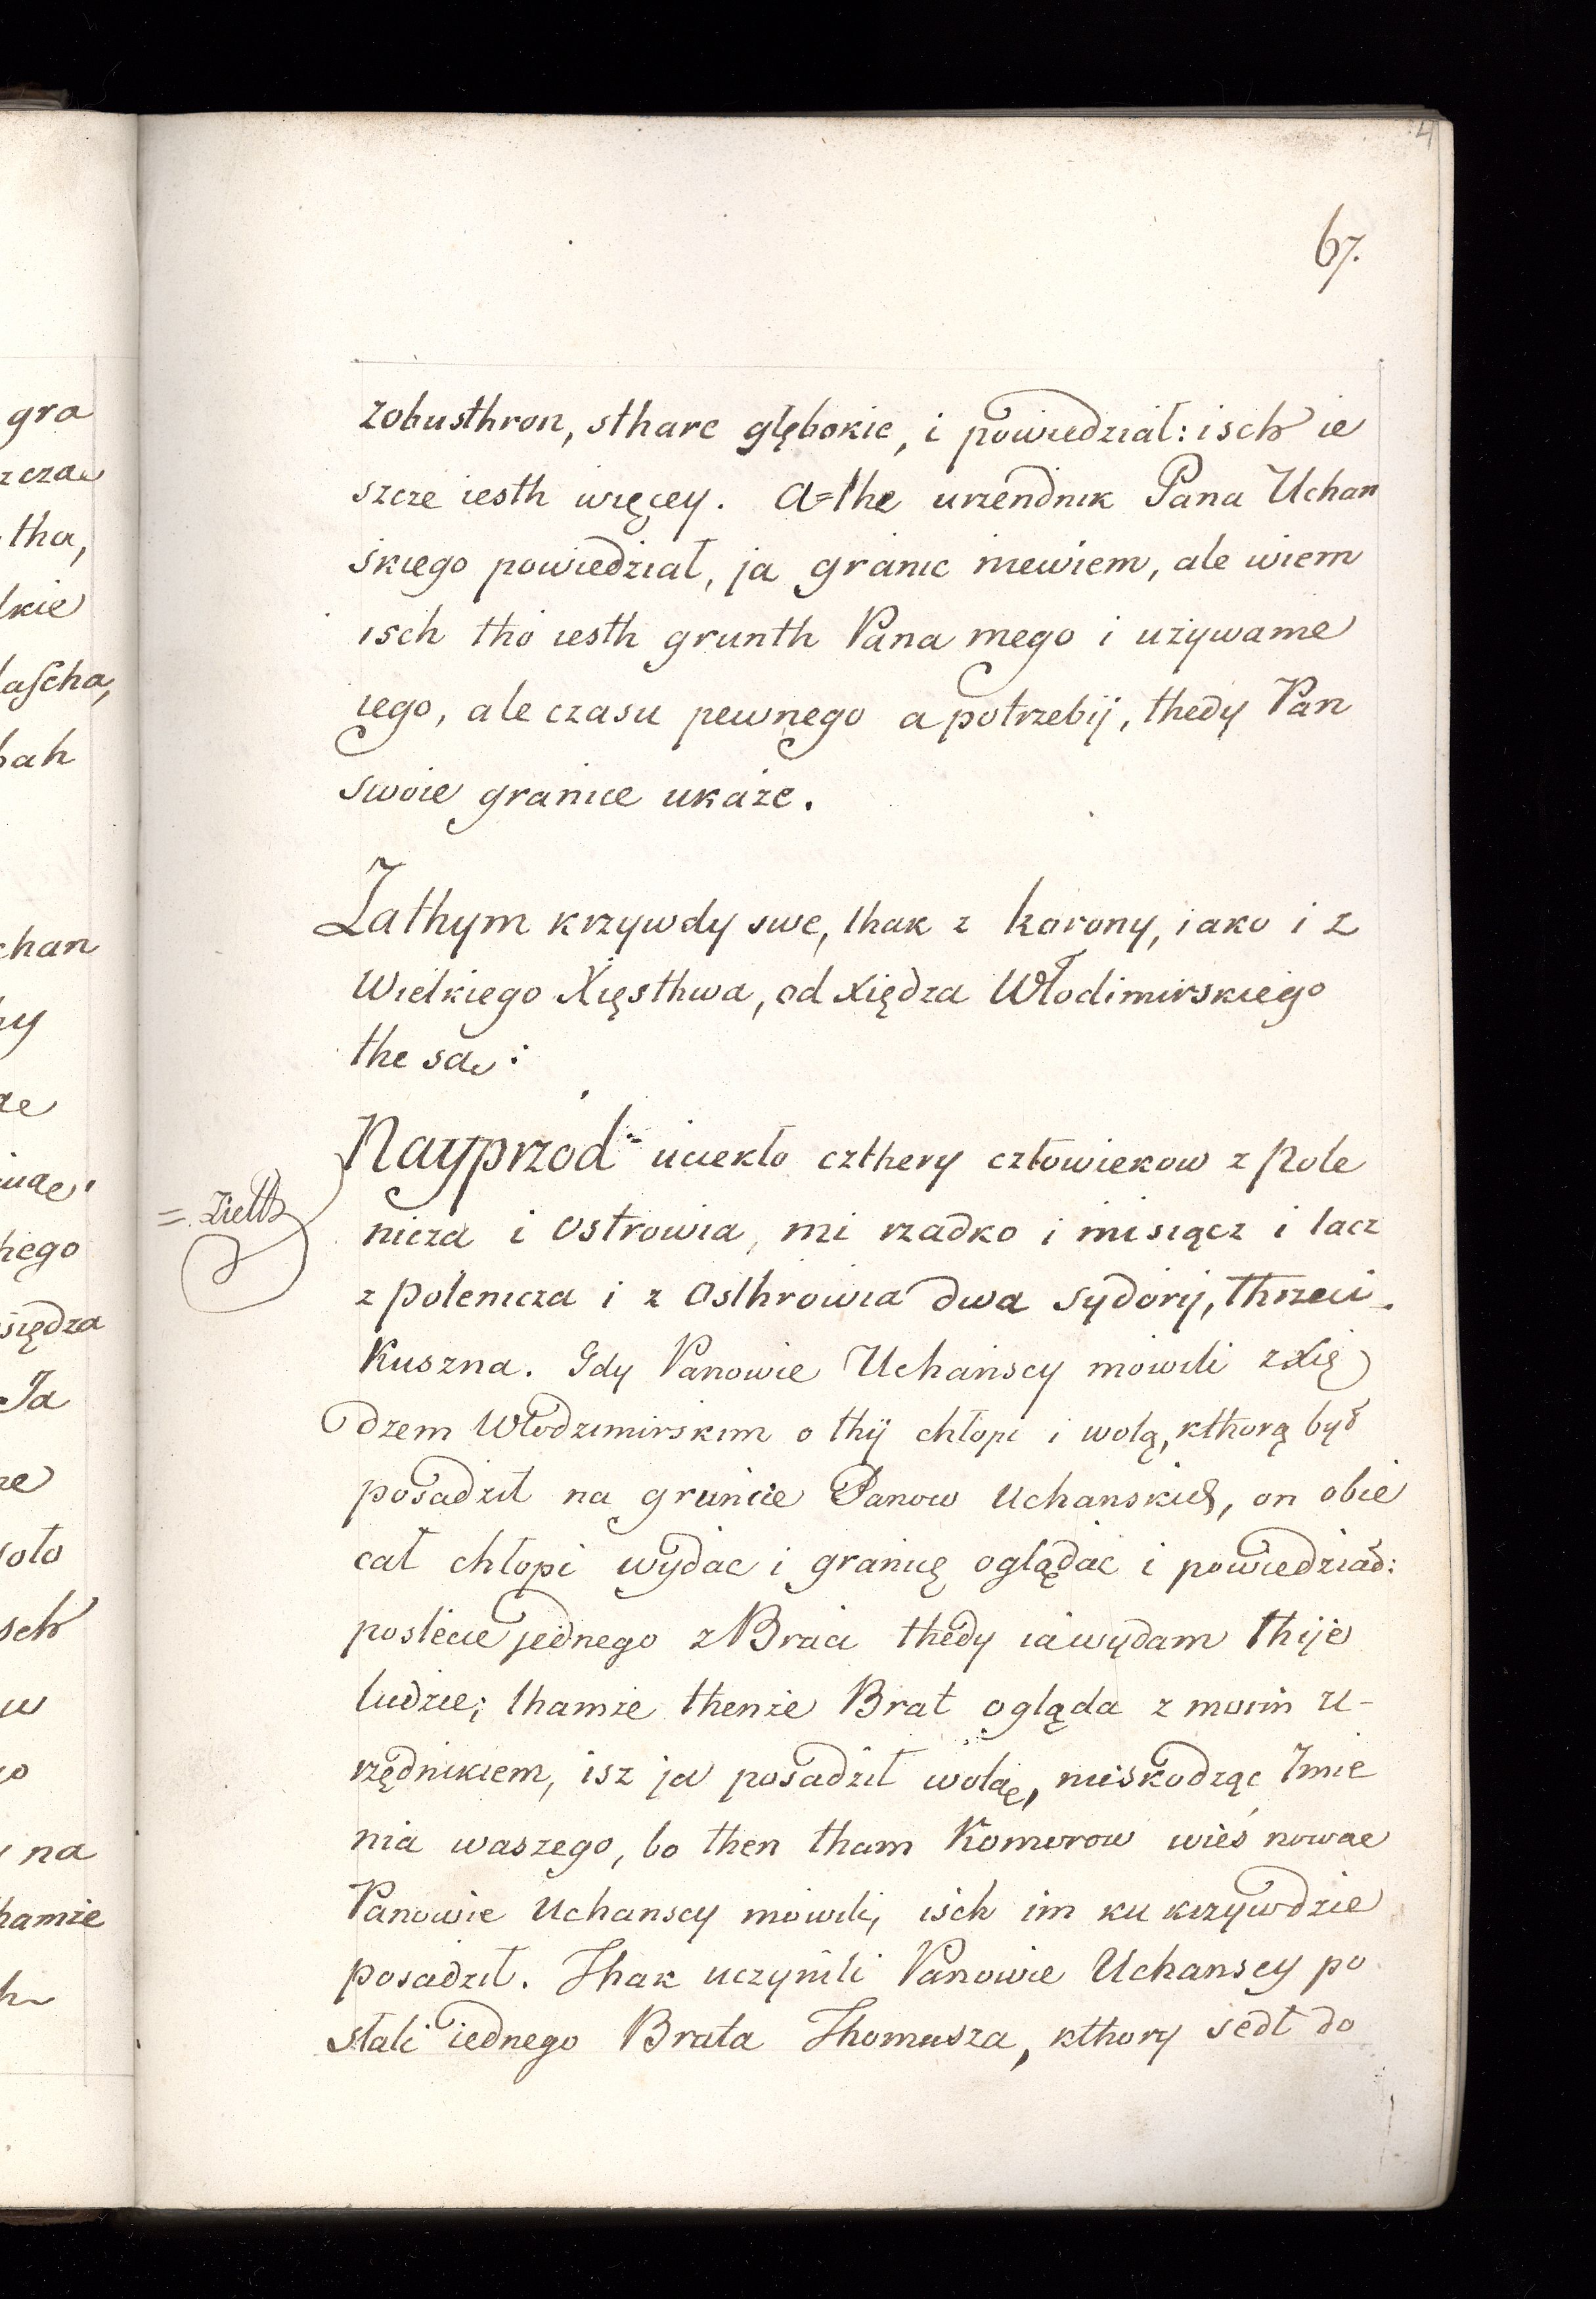 4
67.
zobusthron, sthare głębokie, i powiedział: isch ie
szcze iesth więcey. A=the urzendnik Pana Uchan
skiego powiedział, ja granic niewiem, ale wiem
isch tho iesth grunth Pana mego i używame
iego, ale czasu pewnego a potrzebij, thedy Pan
swoie granice ukaże.
Zathym krzywdy swe, thak z korony, iako i z
Wielkiego Xięsthwa, od xiędza Włodimirskiego
the są:
Nayprzod = uciekło czthery człowiekow z Pole
= zietts
nicza i Ostrowia, mi rzadko i misiącz i lacz
z Polenicza i z Osthrowia dwa Sydorij, Thrzeci
Kuszna. Gdy Panowie Uchańscy mowili z Xię
dzem Włodzimirskim o thij chłopi i wolą, kthorą był
posadził na gruncie Panow Uchanskich, on obie
cał chłopi wydac i granicę oglądac i powiedział:
poslecie jednego z Braci thedy ia wydam thije
ludzie; thamże thenże Brat ogląda z moim U-
rzędnikiem, isz ja posadził wolaę, nieskodząc Imie
nia waszego, bo then tham Komorow wieś nowae
Panowie Uchanscy mowili, isch im ku krzywdzie
posadził. Thak uczynili Panowie Uchanscy po
słali iednego Brata Thomusza, kthory sedł do
gra
tha,
chan
Ja
na